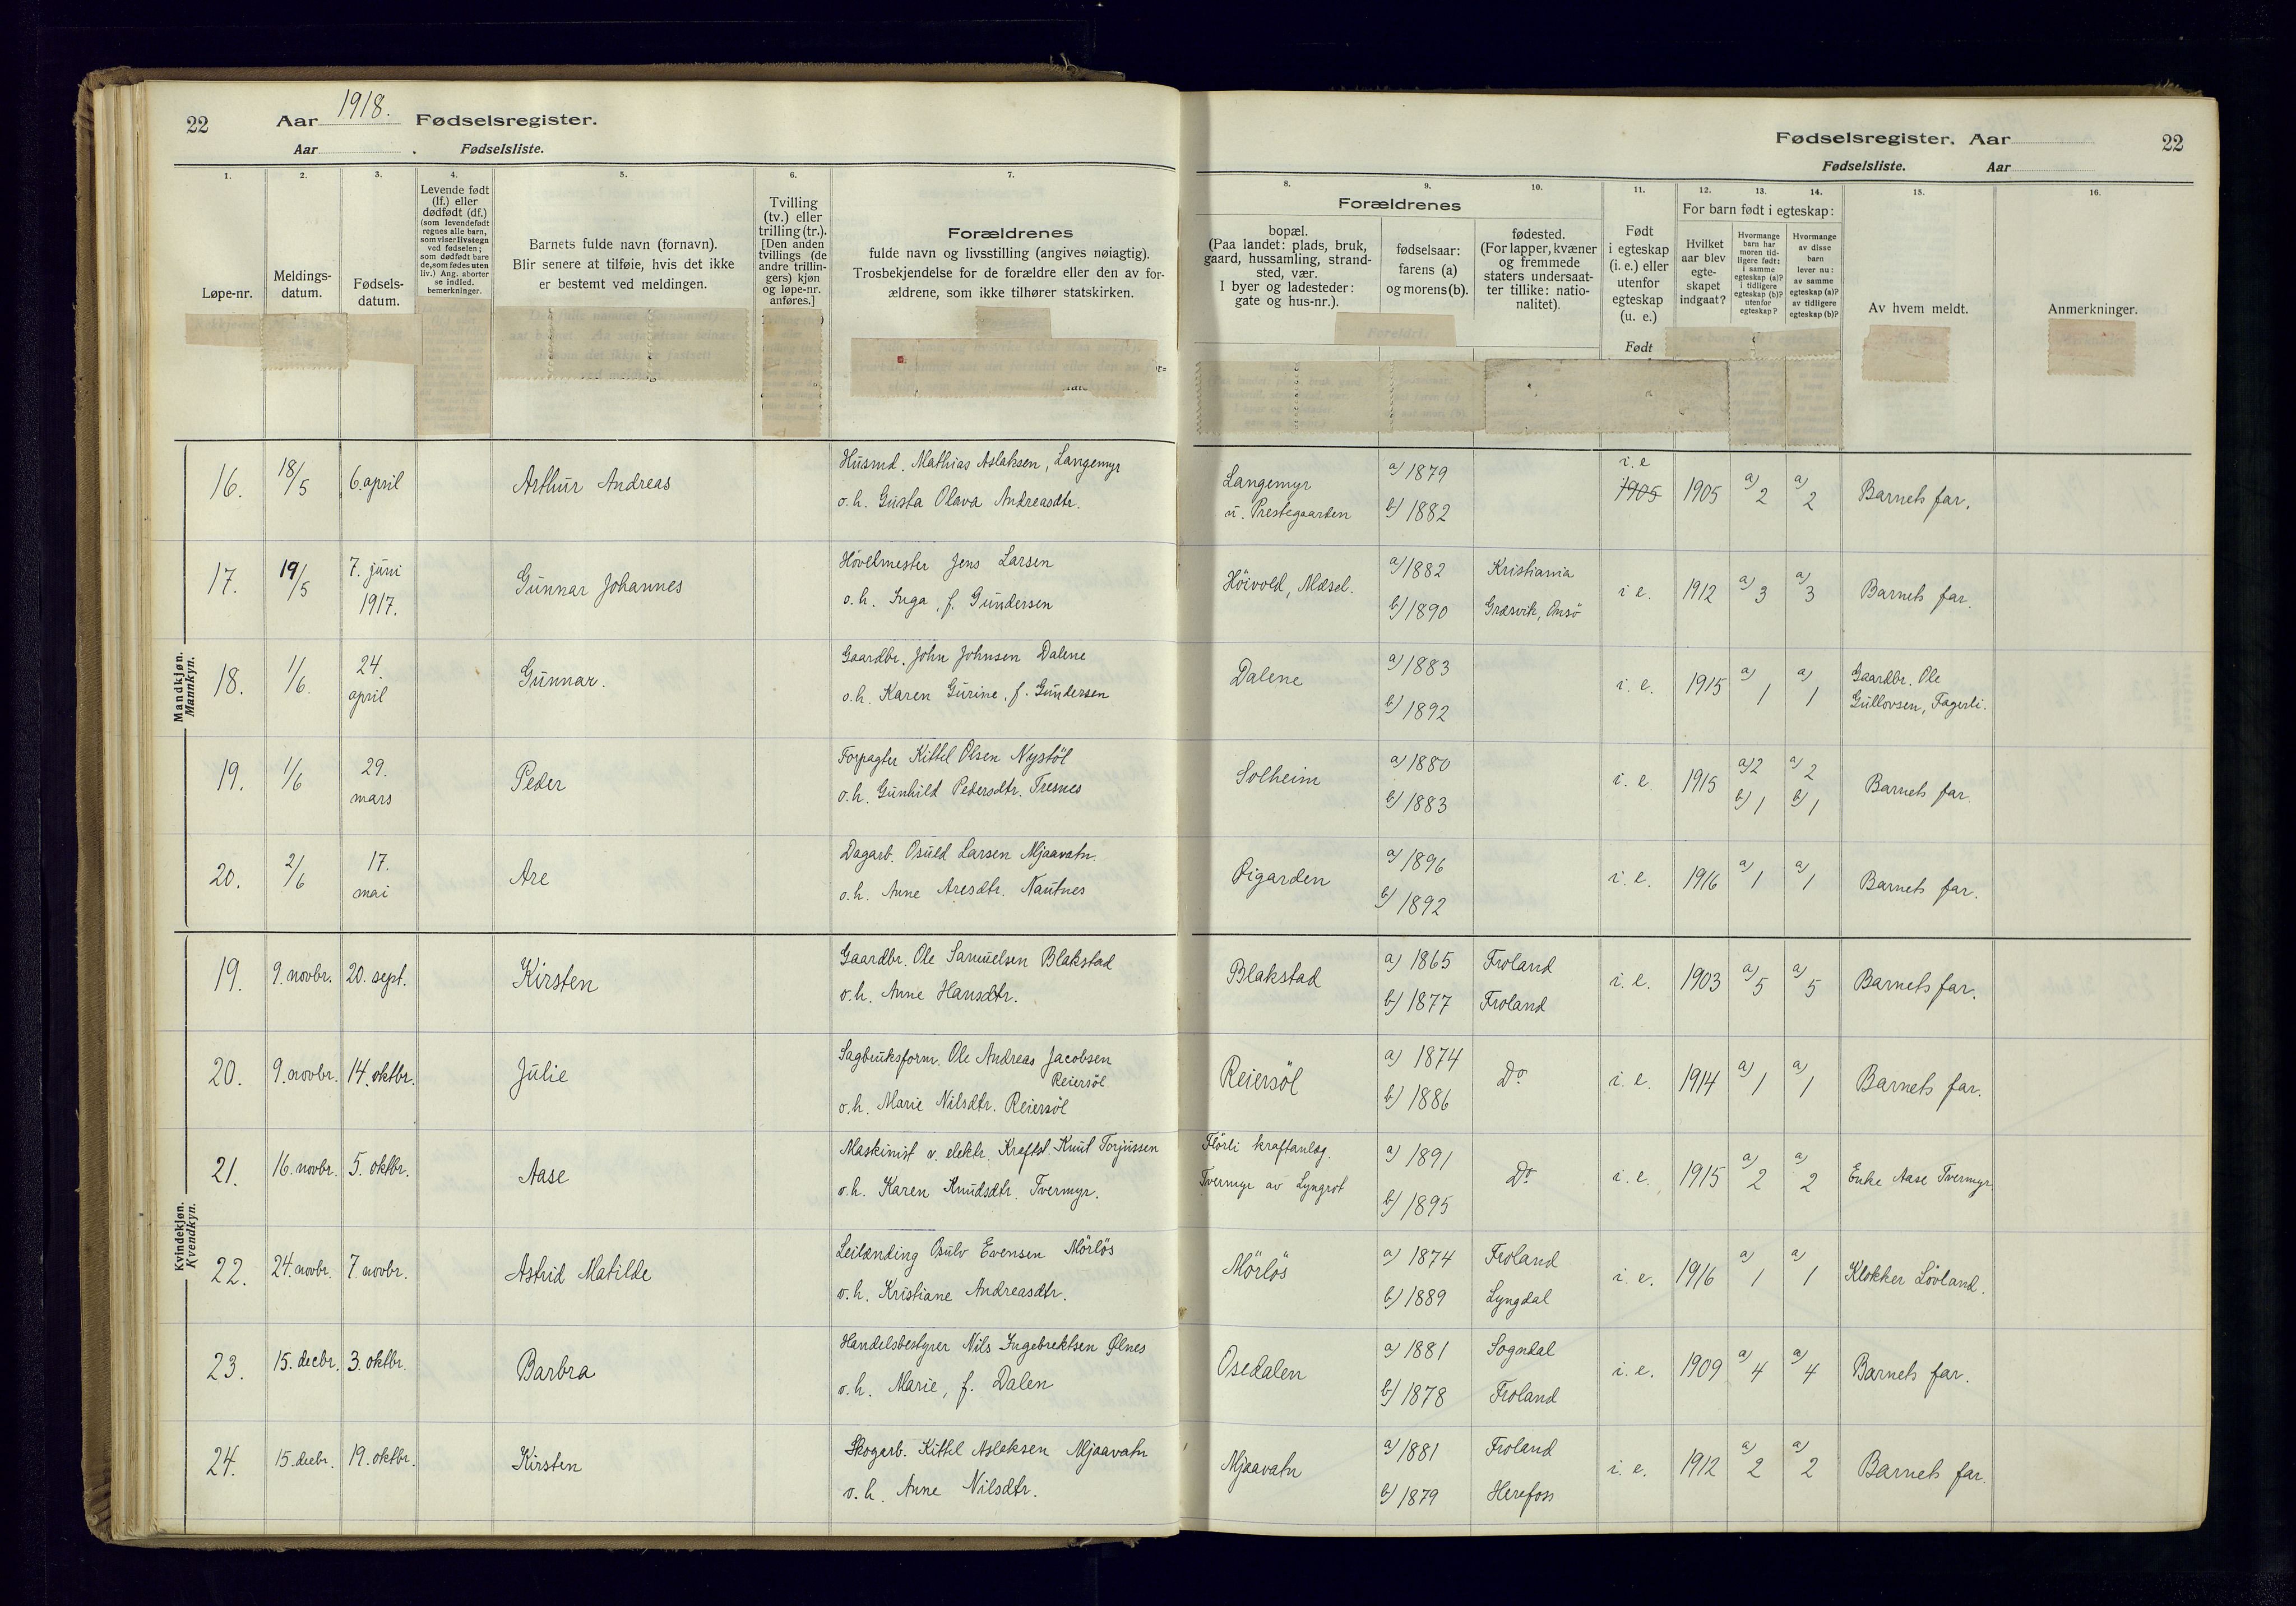 22 Aar 1918. Fødselsregister.
Aar . Fødselsliste.
Fødselsregister. Aar 22
Fødselsliste. Aar
1. 2. 3. 4. 5. 6. 7. 8. 9. 10. 11. 12. 13. 14. 15. 16.
Løpe-nr.
Meldings-
datum.
Fødsels-
datum.
Levende født
(lf.) eller
dødfødt (df.)
(som levendefødt
regnes alle barn,
som viser livstegn
ved fødselen;
som dødfødt bare
de, som fødes uten
liv.) Ang. aborter
se indled.
bemerkninger.
Barnets fulde navn (fornavn).
Blir senere at tilføie, hvis det ikke
er bestemt ved meldingen.
Tvilling
(tv.) eller
trilling (tr.).
[Den anden
tvillings (de
andre trillin-
gers) kjøn
og løpe-nr.
anføres.]
Forældrenes
fulde navn og livsstilling (angives nøiagtig).
Trosbekjendelse for de forældre eller den av for-
ældrene, som ikke tilhører statskirken.
Forældrenes
bopæl.
(Paa landet: plads, bruk,
gaard, hussamling, strand-
sted, vær.
I byer og ladesteder:
gate og hus-nr.).
fødselsaar:
farens (a)
og morens (b).
fødested.
(For lapper, kvæner
og fremmede
staters undersaat-
ter tillike: natio-
nalitet).
Født
i egteskap
(i. e.) eller
utenfor
egteskap
(u. e.)
Født
For barn født i egteskap:
Hvilket
aar blev
egte-
skapet
indgaat?
Hvormange
barn har
moren tid-
ligere født:
i samme
egteskap (a)?
i tidligere
egteskap (b)?
utenfor
egteskap?
Hvormange
av disse
barn
lever nu:
av samme
egteskap (a)?
av tidligere
egteskap (b)?
Av hvem meldt.
Anmerkninger.
Mandkjøn.
Mannkyn.
16. 18/5 6. april Arthur Andreas
Husmd. Mathias Aslaksen, Langemyr
o. h. Gusta Olava Andreasdtr.
Langemyr
u. Prestegaarden
a) 1879
b) 1882
i. e
1905
1905 a) 2 a) 2 Barnets far.
17. 19/5 7. juni
1917.
Gunnar Johannes
Hövelmester Jens Larsen
o. h. Inga, f. Gundersen
Höivold, Mæsel.
a) 1882 Kristiania
b) 1890 Græsvik, Onsö
i e. 1912 a) 3 a) 3 Barnets far.
18. 1/6. 24.
april
Gunnar.
Gaardbr. John Johnsen Dalene
o. h. Karen Gurine, f. Gundersen
Dalene
a) 1883
b) 1892
i. e. 1915 a) 1 a) 1
Gaardbr. Ole
Gullovsen, Fagerli.
19. 1/6 29.
mars
Peder
Forpagter Kittel Olsen Nystöl
o. h. Gunhild Pedersdtr. Tresnes
Solheim
a) 1880
b) 1883
i. e 1915 a) 2 a) 2
b) 1 b) 1
Barnets far.
20. 2/6 17.
mai
Are
Dagarb. Osuld Larsen Mjaavatn.
o. h. Anne Aresdtr. Nautnes
Øigarden
a) 1896
b) 1892
i. e. 1916 a) 1 a) 1 Barnets far.
Kvindekjøn.
Kvendkyn.
19. 9. novbr. 20. sept. Kirsten
Gaardbr. Ole Samuelsen Blakstad
o. h. Anne Hansdtr.
Blakstad
a) 1865 Froland
b) 1877 Froland
i. e. 1903 a) 5 a) 5 Barnets far.
20. 9. novbr. 14. oktbr. Julie
Sagbruksform. Ole Andreas Jacobsen
Reiersöl
o. h. Marie Nilsdtr. Reiersöl
Reiersöl
a) 1874
b) 1886
Do i. e. 1914 a) 1 a) 1 Barnets far.
21. 16. novbr. 5. oktbr. Aase
Maskinist v. elektr. Kraftst. Knut Torjussen
o. h. Karen Knudsdtr. Tvermyr.
Flörli kraftanlæg.
Tvermyr av Lyngrot
a) 1891
b) 1895
Do i. e. 1915 a) 2 a) 2 Enke Aase Tvermyr.
22. 24. novbr. 7. novbr. Astrid Matilde
Leilænding Osulv Evensen Mörlös
o. h. Kristiane Andreasdtr.
Mörlös
a) 1874 Froland
b) 1889 Lyngdal
i. e. 1916 a) 1 a) 1 Klokker Lövland.
23. 15. decbr. 3. oktbr. Barbra
Handelsbestyrer Nils Ingebrektsen Ølnes
o. h. Marie, f. Dalen
Osedalen
a) 1881 Sogndal
b) 1878 Froland
i. e. 1909 a) 4 a) 4 Barnets far.
24. 15. decbr. 19. oktbr. Kirsten
Skogarb. Kittel Aslaksen Mjaavatn
o. h. Anne Nilsdtr.
Mjaavatn
a) 1881 Froland
b) 1879 Herefoss
i. e. 1912 a) 2 a) 2 Barnets far.